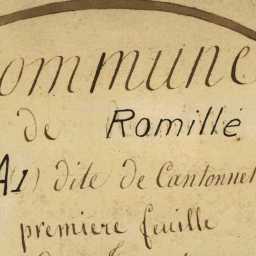 ommune
de Romillé
A(1) dite de Cantonnet
premiere feuille